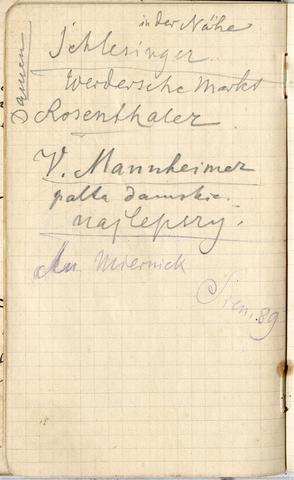 in der Nähe
Damen
Schlesinger
Werdersche Markt
Rosenthaler
V. Mannheimer
palta damskie
najlepszy.
Miernick
Sien. 89